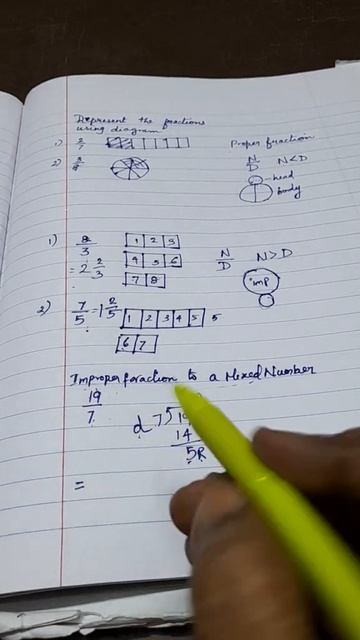 Represent the fractions
using diagram
Proper fraction
1) 2/7
N/D N<D
2) 3/8
head
body
1) 8/3 1 2 3
= 2 2/3 4 5 6
7 8
N/D N>D
imp
2) 7/5 = 1 2/5 1 2 3 4 5 5
6 7
Improper foraction to a Mixed Number
19/7
d 7
14
5R
=